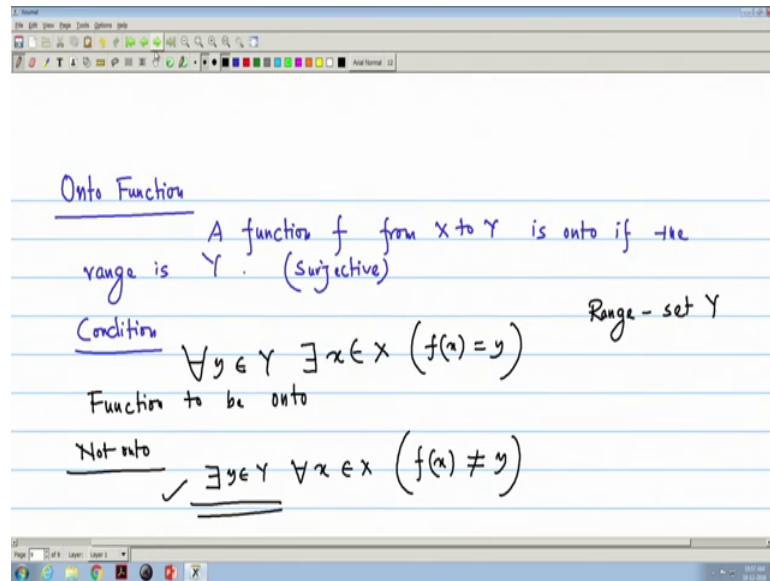 Journal
File Edit View Page Tools Options Help
Arial Normal 12
Onto Function
A function f from X to Y is onto if the
range is Y. (Surjective)
Range - set Y
Condition
∀ y ∈ Y ∃ x ∈ X (f(x) = y)
Function to be onto
Not onto
✓ ∃ y ∈ Y ∀ x ∈ X (f(x) ≠ y)
Page 9 of 9 Layer: Layer 1